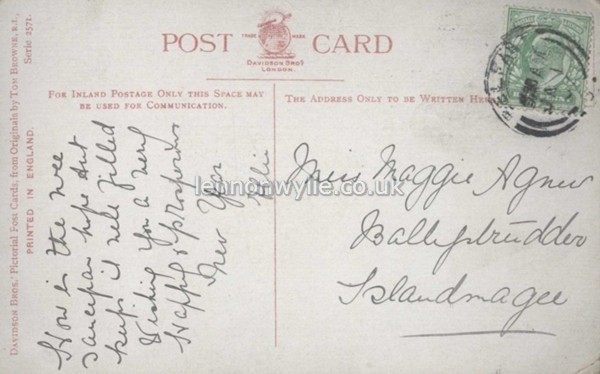 POST CARD
TRADE MARK
DAVIDSON BROS
LONDON.
FOR INLAND POSTAGE ONLY THIS SPACE MAY
BE USED FOR COMMUNICATION.
THE ADDRESS ONLY TO BE WRITTEN HERE
DAVIDSON BROS.' Pictorial Post Cards, from Originals by TOM BROWNE, R.I., Serie 2571.
PRINTED IN ENGLAND.
How is the wee
saucepan hope Aut
keeps it well filled
Wishing you a very
Happy & prosperous
New Year
Nellie
Miss Maggie Agnew
Ballystrudder
Islandmagee
BELFAST
lennonwylie.co.uk